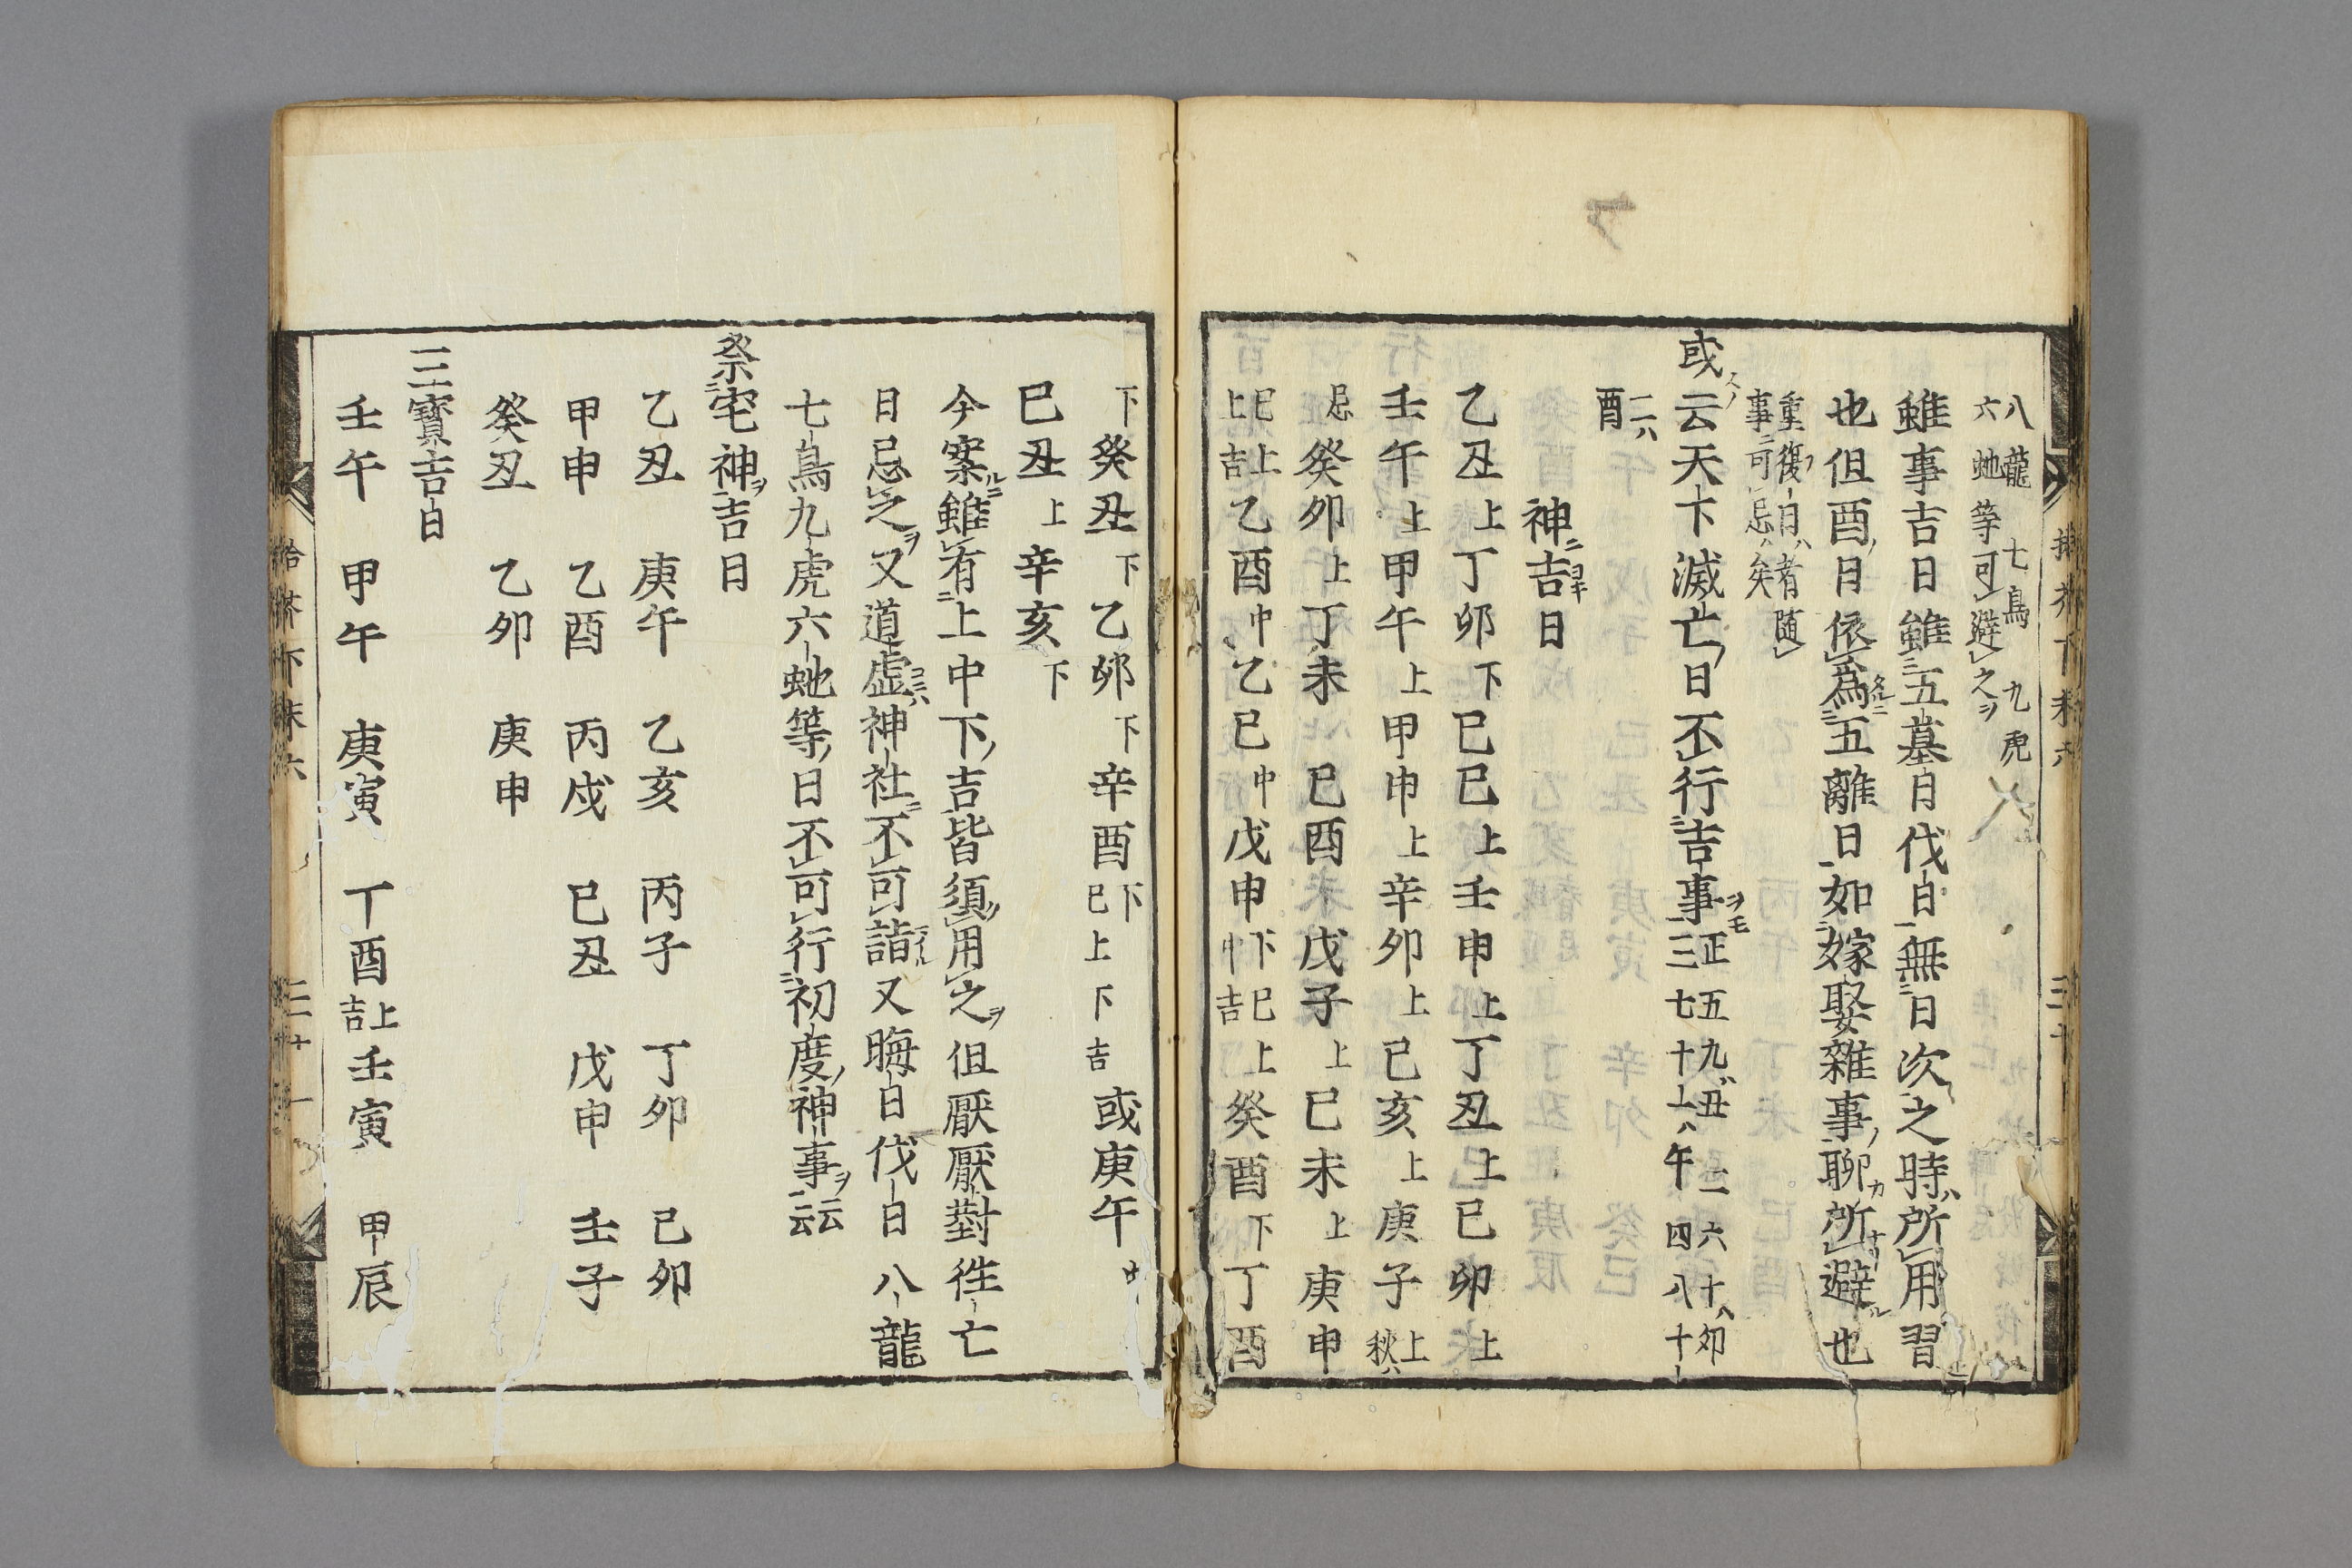 八龍 七鳥 九虎
六虵等可避之ヲ
雖事吉日雖五墓日伐日無日次之時ハ所用習
也但酉ノ日依為五離日如嫁娶雜事ノ聊所避也
重復日ハ者随
事可忌矣
或云天下滅亡日不行吉事ヲモ
正五九丑 二六十ハ卯
三七十一ハ午 四八十
二ハ
酉
神吉日
乙丑上丁卯下巳巳上壬申上丁丑上巳卯上
壬午上甲午上甲申上辛卯上己亥上庚子上
秋ハ
忌癸卯上丁未 巳酉戊子上巳未上庚申
巳上
上吉乙酉中乙巳中戊申下巳上
中吉癸酉下丁酉
下癸丑下乙卯下辛酉下
巳上下吉 或庚午
巳丑上辛亥下
今案雖有上中下ノ吉皆須用之ヲ但厭厭對徃亡
日忌之ヲ又道虚神社不可詣又晦日伐日八龍
七鳥九虎六虵等ノ日不可行初度ノ神事ヲ云云
祭宅神吉日
乙丑 庚午 乙亥 丙子 丁卯 己卯
甲申 乙酉 丙戌 巳丑 戊申 壬子
癸丑 乙卯 庚申
三寳吉日
壬午 甲午 庚寅 丁酉上
吉壬寅 甲辰
拾芥下末六
三十一